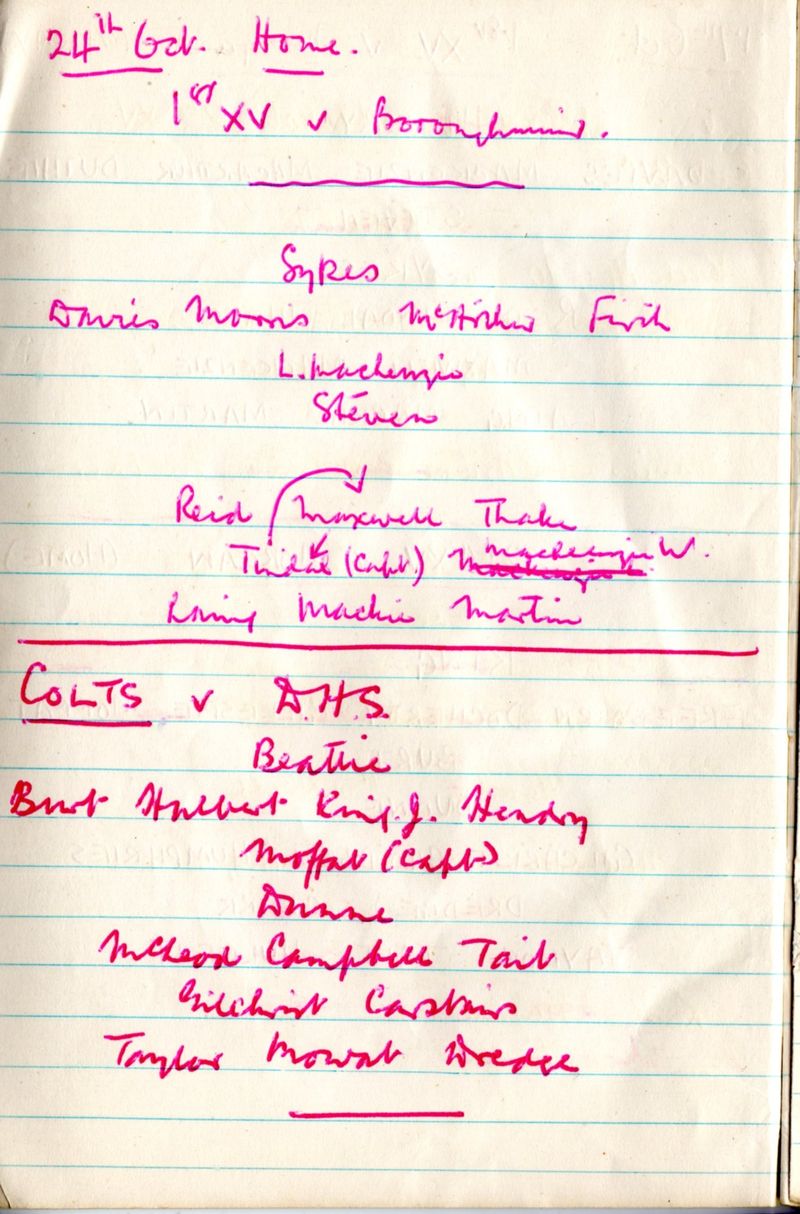 24th Oct. Home.
1st XV v Boroughmuir.
Sykes
Davies Morris Firth
L. Mackenzie
Stéven
Reid Maxwell Thake
(Capt.) Mackenzie W.
Laing Mackie Martin
COLTS v D.H.S.
Beattie
Burt Hulbert King.J. Hendry
Moffat (Capt)
Dunne
McLeod Campbell Tait
Gilchrist Carstairs
Taylor Mowat Dredge